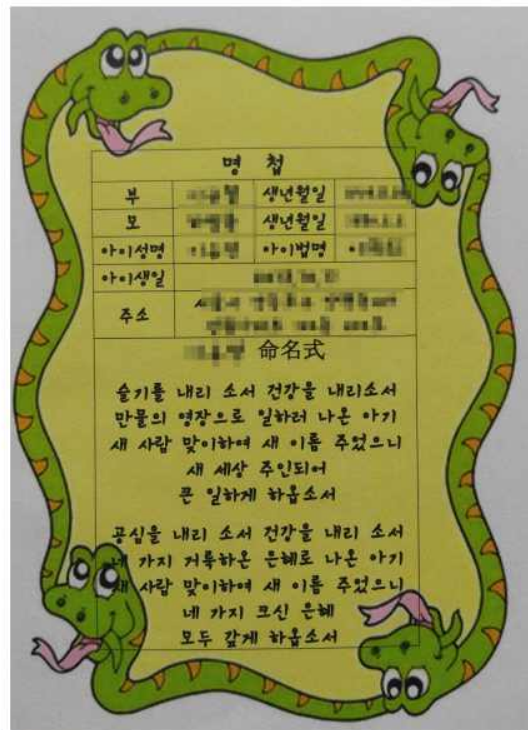 명 첩
부 생년월일
모 생년월일
아이성명 아이법명
아이생일
주소
命名式
슬기를 내리 소서 건강을 내리소서
만물의 영장으로 일하러 나온 아기
새 사람 맞이하여 새 이름 주었으니
새 세상 주인되어
큰 일하게 하옵소서
공심을 내리 소서 건강을 내리 소서
네 가지 거룩하온 은혜로 나온 아기
새 사람 맞이하여 새 이름 주었으니
네 가지 크신 은혜
모두 갚게 하옵소서